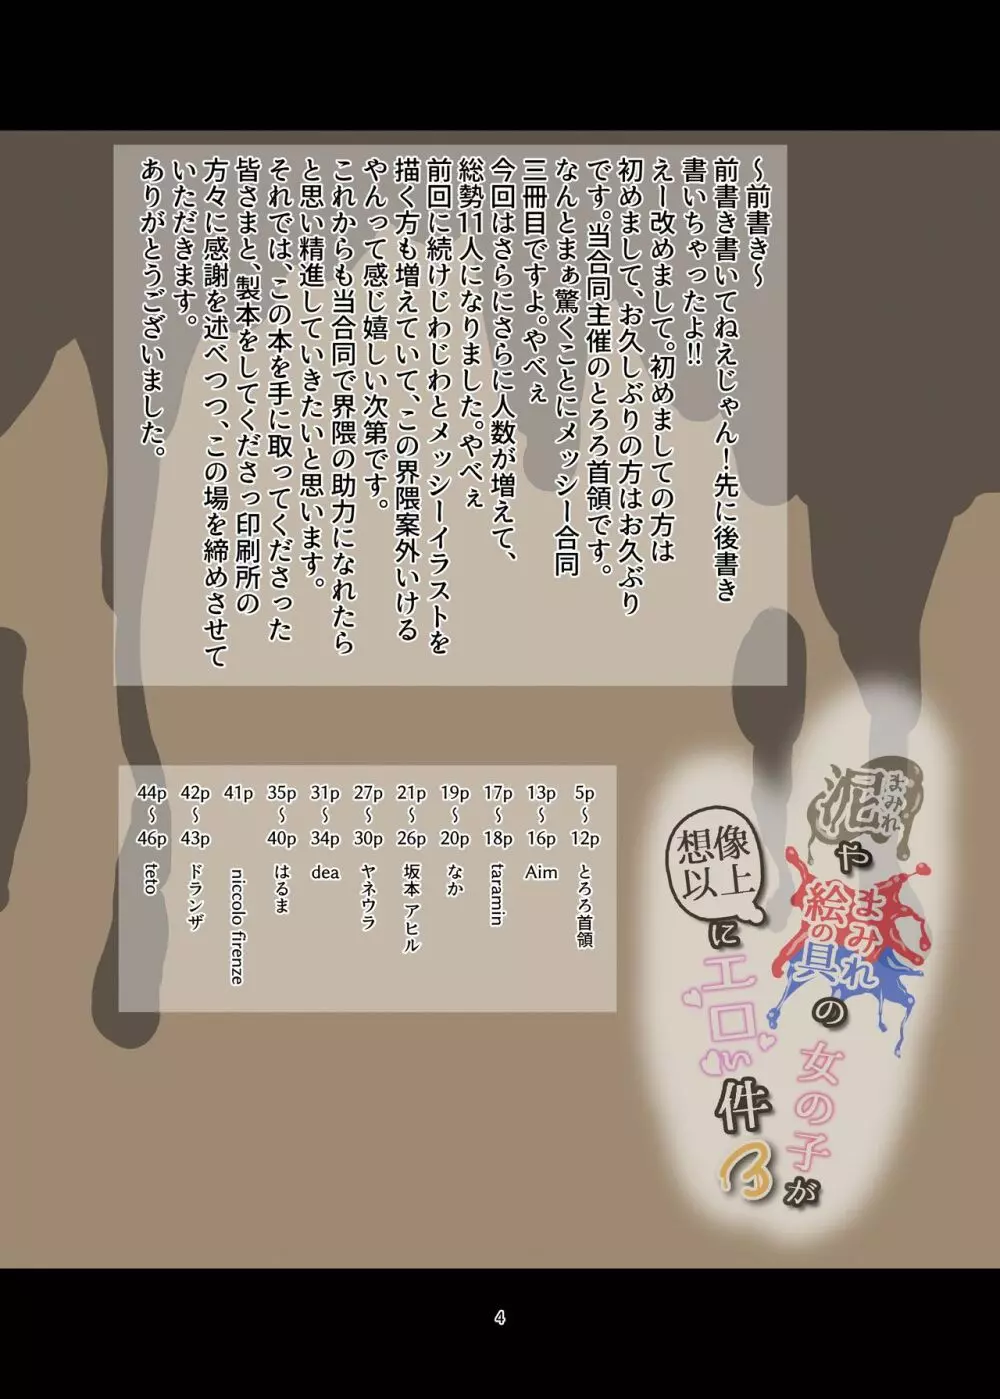 ～前書き～
前書き書いてねえじゃん！先に後書き
書いちゃったよ!!
えー改めまして。初めましての方は
初めまして、お久しぶりの方はお久ぶり
です。当合同主催のとろろ首領です。
なんとまぁ驚くことにメッシー合同
三冊目ですよ。やべぇ
今回はさらにさらに人数が増えて、
総勢11人になりました。やべぇ
前回に続けじわじわとメッシーイラストを
描く方も増えていて、この界隈案外いける
やんって感じ嬉しい次第です。
これからも当合同で界隈の助力になれたら
と思い精進していきたいと思います。
それでは、この本を手に取ってくださった
皆さまと、製本をしてくださっ印刷所の
方々に感謝を述べつつ、この場を締めさせて
いただきます。
ありがとうございました。
泥まみれや
絵の具まみれの
女の子が
想像以上に
エロい件
3
5p～12p とろろ首領
13p～16p Aim
17p～18p taramin
19p～20p なか
21p～26p 坂本 アヒル
27p～30p ヤネウラ
31p～34p dea
35p～40p はるま
41p niccolo firenze
42p～43p ドランザ
44p～46p teto
4